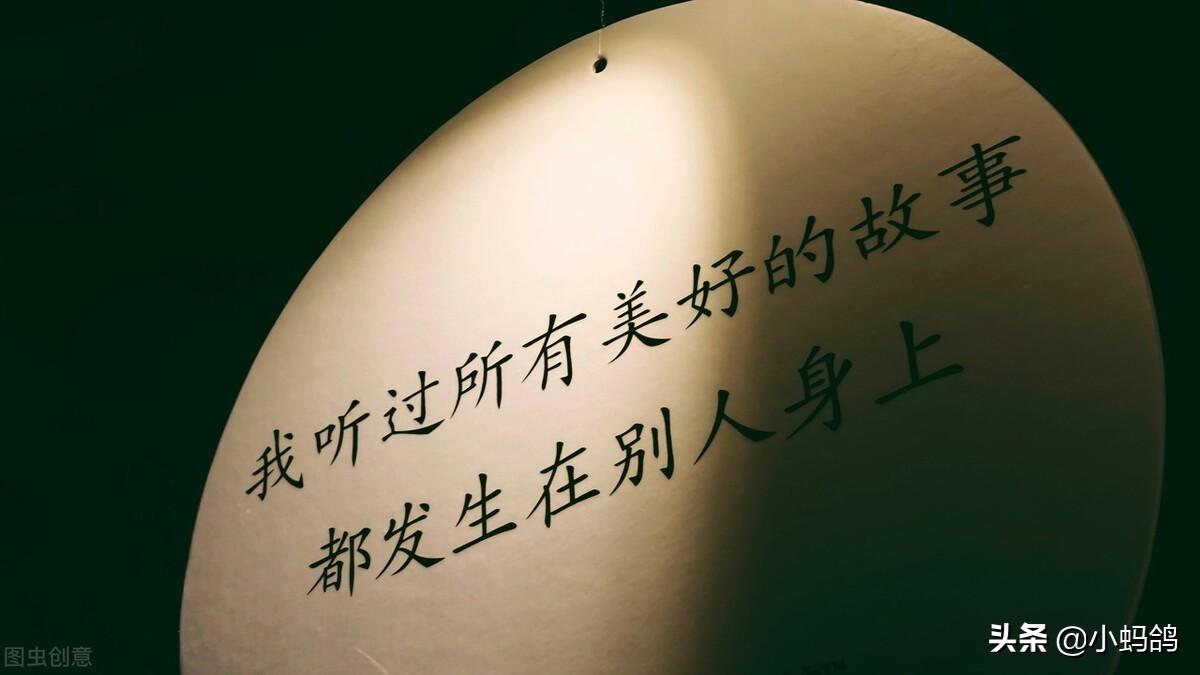 我听过所有美好的故事
都发生在别人身上
图虫创意
头条 @小蚂鸽